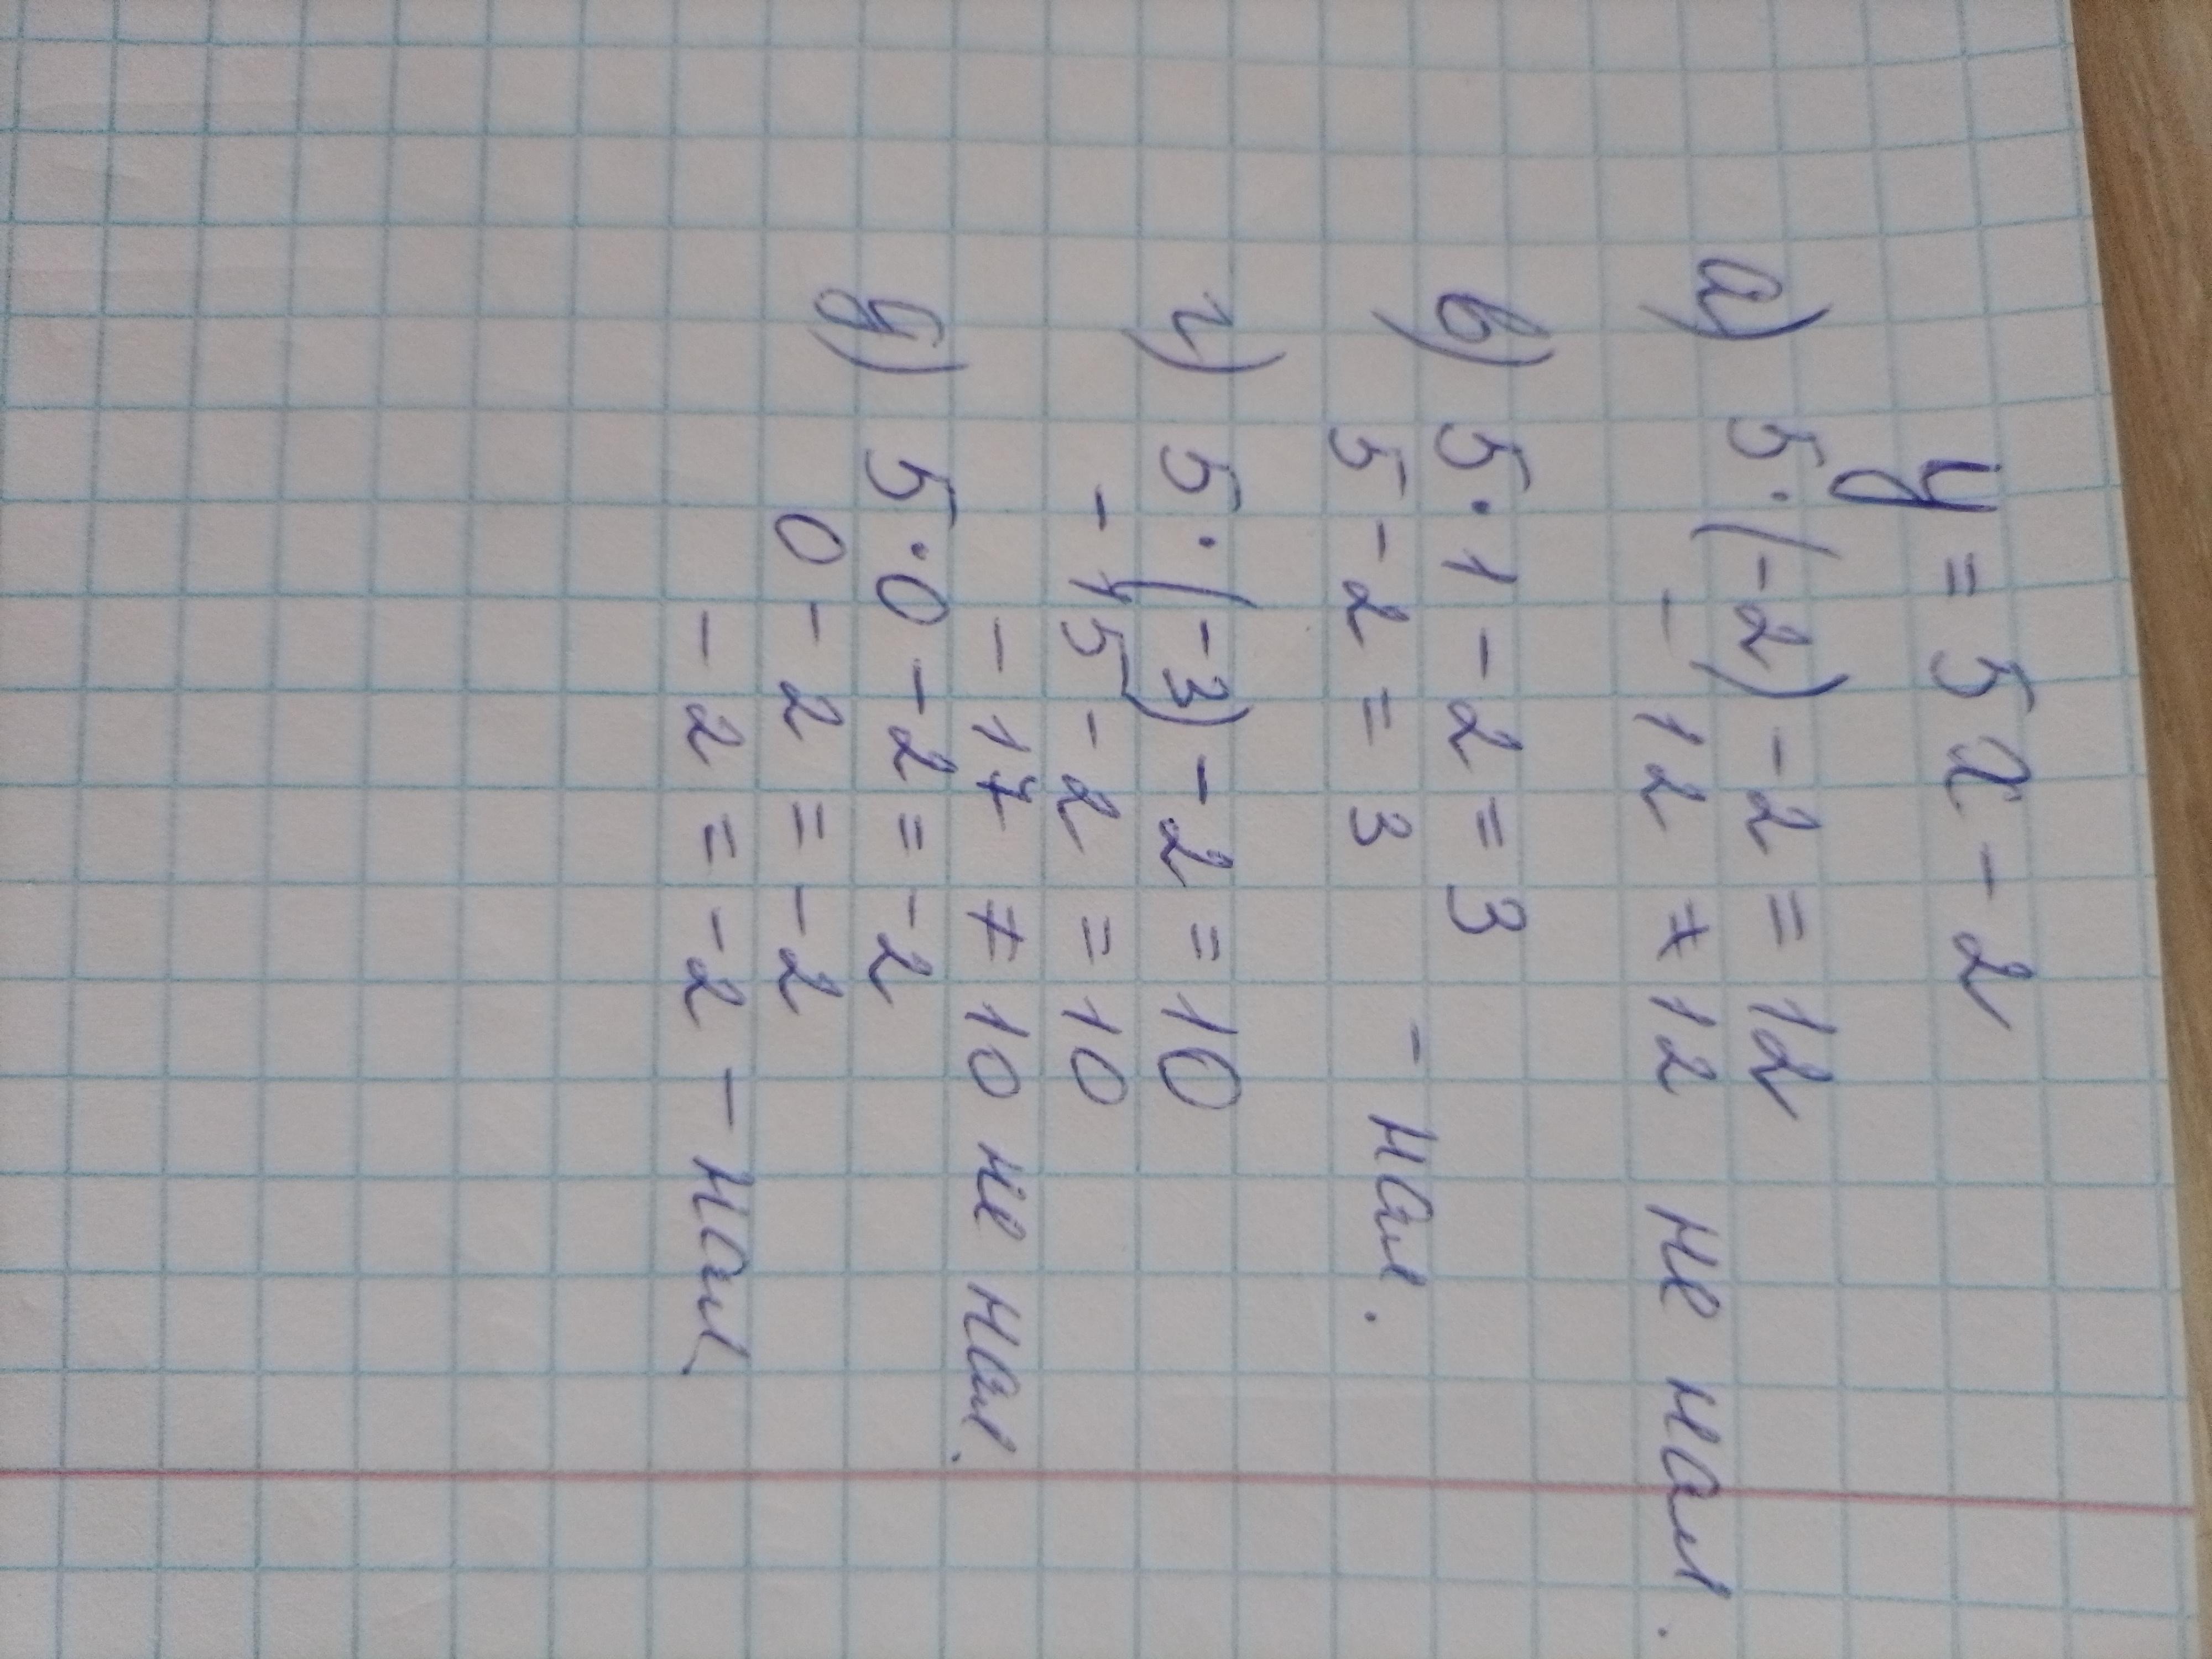 y = 5x - 2
а) 5·(-2) - 2 = 12
- 12 ≠ 12 не нал.
в) 5·1 - 2 = 3
5 - 2 = 3 - нал.
г) 5·(-3) - 2 = 10
- 15 - 2 = 10
- 17 ≠ 10 не нал.
б) 5·0 - 2 = -2
0 - 2 = -2
- 2 = -2 - нал.